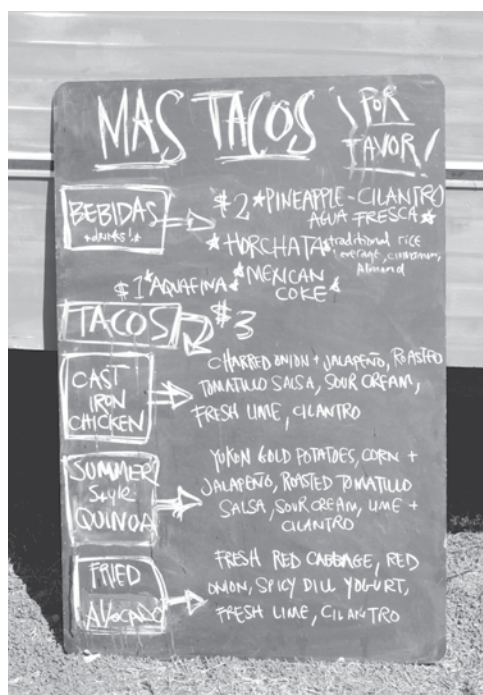 MAS TACOS ¡POR
FAVOR!
BEBIDAS
*drinks!*
$2 *PINEAPPLE-CILANTRO
AGUA FRESCA*
*HORCHATA* traditional rice
beverage, cinnamon,
Almond
$1 *AQUAFINA *MEXICAN
COKE*
TACOS $3
CAST
IRON
CHICKEN
CHARRED ONION + JALAPEÑO, ROASTED
TOMATILLO SALSA, SOUR CREAM,
FRESH LIME, CILANTRO
SUMMER
Style
QUINOA
YUKON GOLD POTATOES, CORN +
JALAPEÑO, ROASTED TOMATILLO
SALSA, SOUR CREAM, LIME +
CILANTRO
FRIED
AVOCADO
FRESH RED CABBAGE, RED
ONION, SPICY DILL YOGURT,
FRESH LIME, CILANTRO